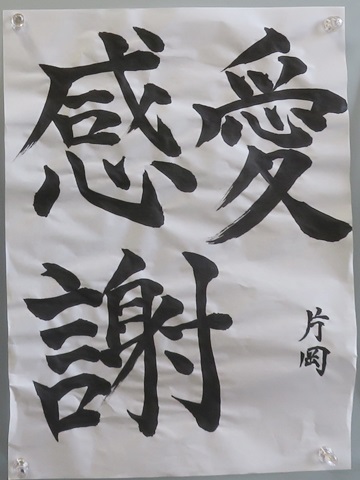 愛
感謝
片岡